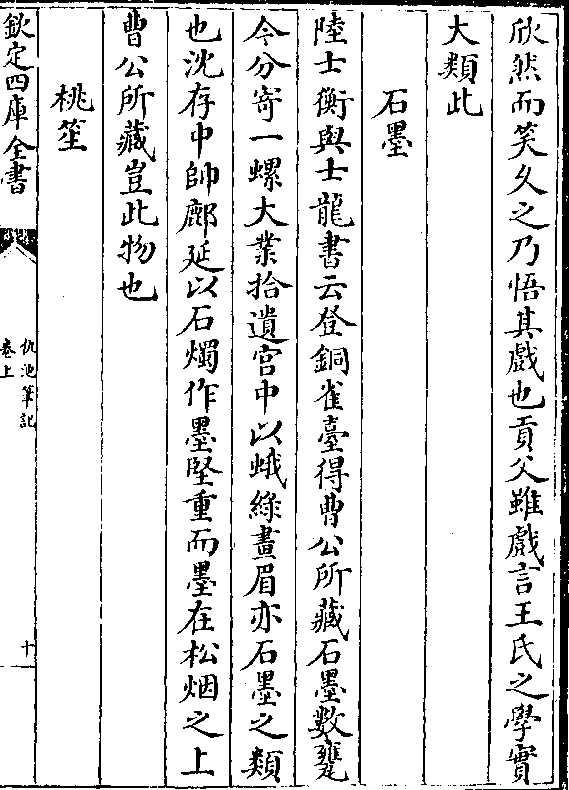 欣然而笑久之乃悟其戲也貢父雖戲言王氏之學實
大類此
石墨
陸士衡與士龍書云登銅雀臺得曹公所藏石墨數甕
今分寄一螺大業拾遺宫中以蛾綠畫眉亦石墨之類
也沈存中帥鄜延以石燭作墨堅重而墨在松烟之上
曹公所藏豈此物也
桃笙
欽定四庫全書
仇池筆記
卷上
十